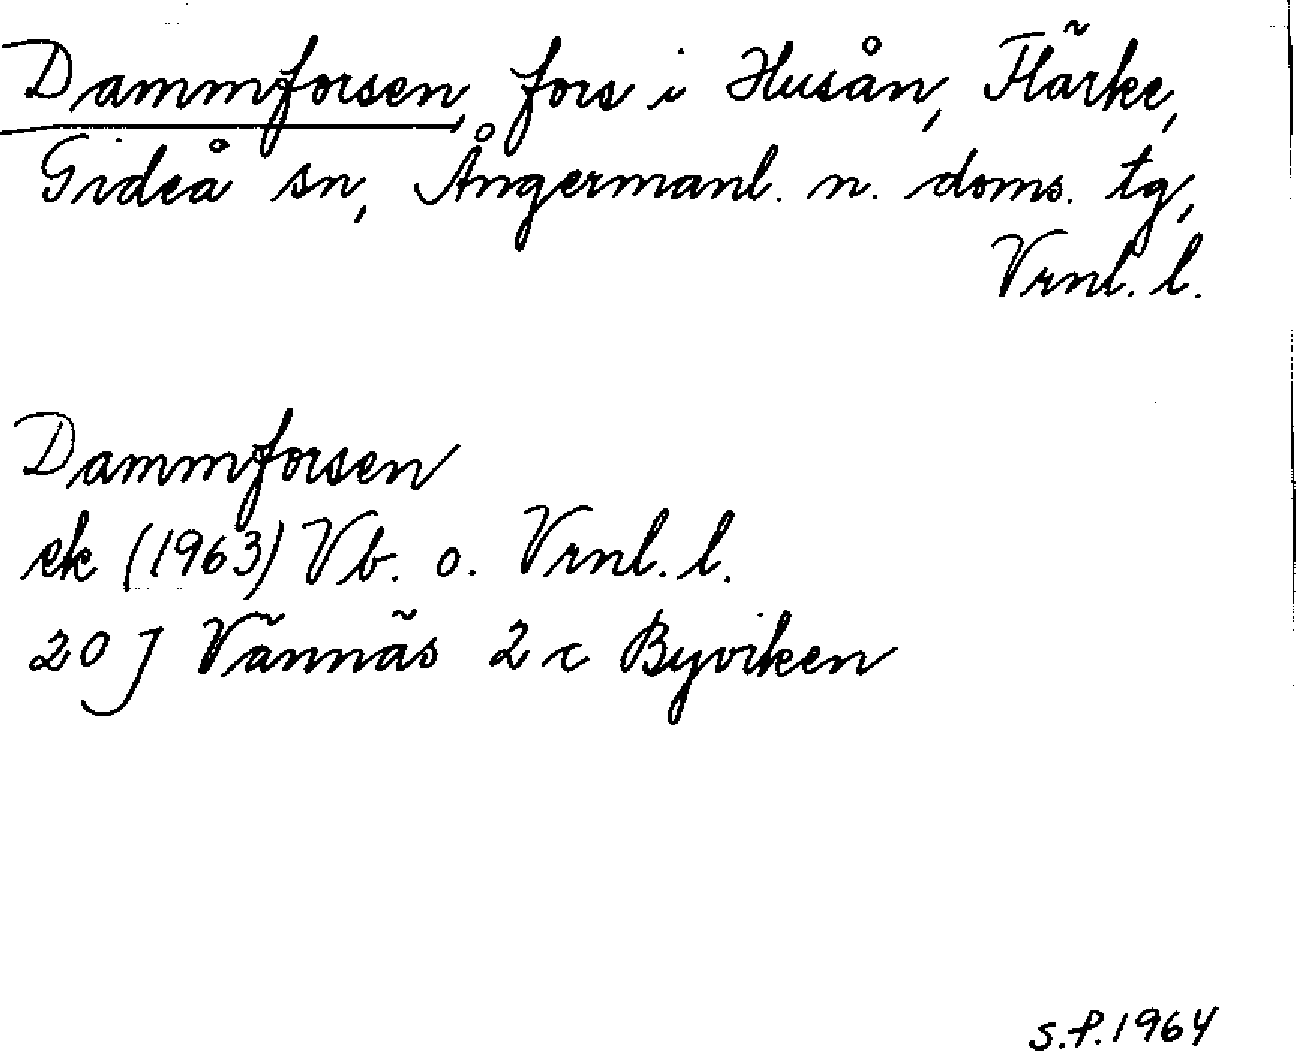 Dammforsen, fors i Husån, Flärke,
Gideå sn, Ångermanl. n. doms. tg,
Vrnl. l.
Dammforsen
ek (1963) Vb. o. Vrnl. l.
20 J Vännäs 2 c Byviken
S.P. 1964